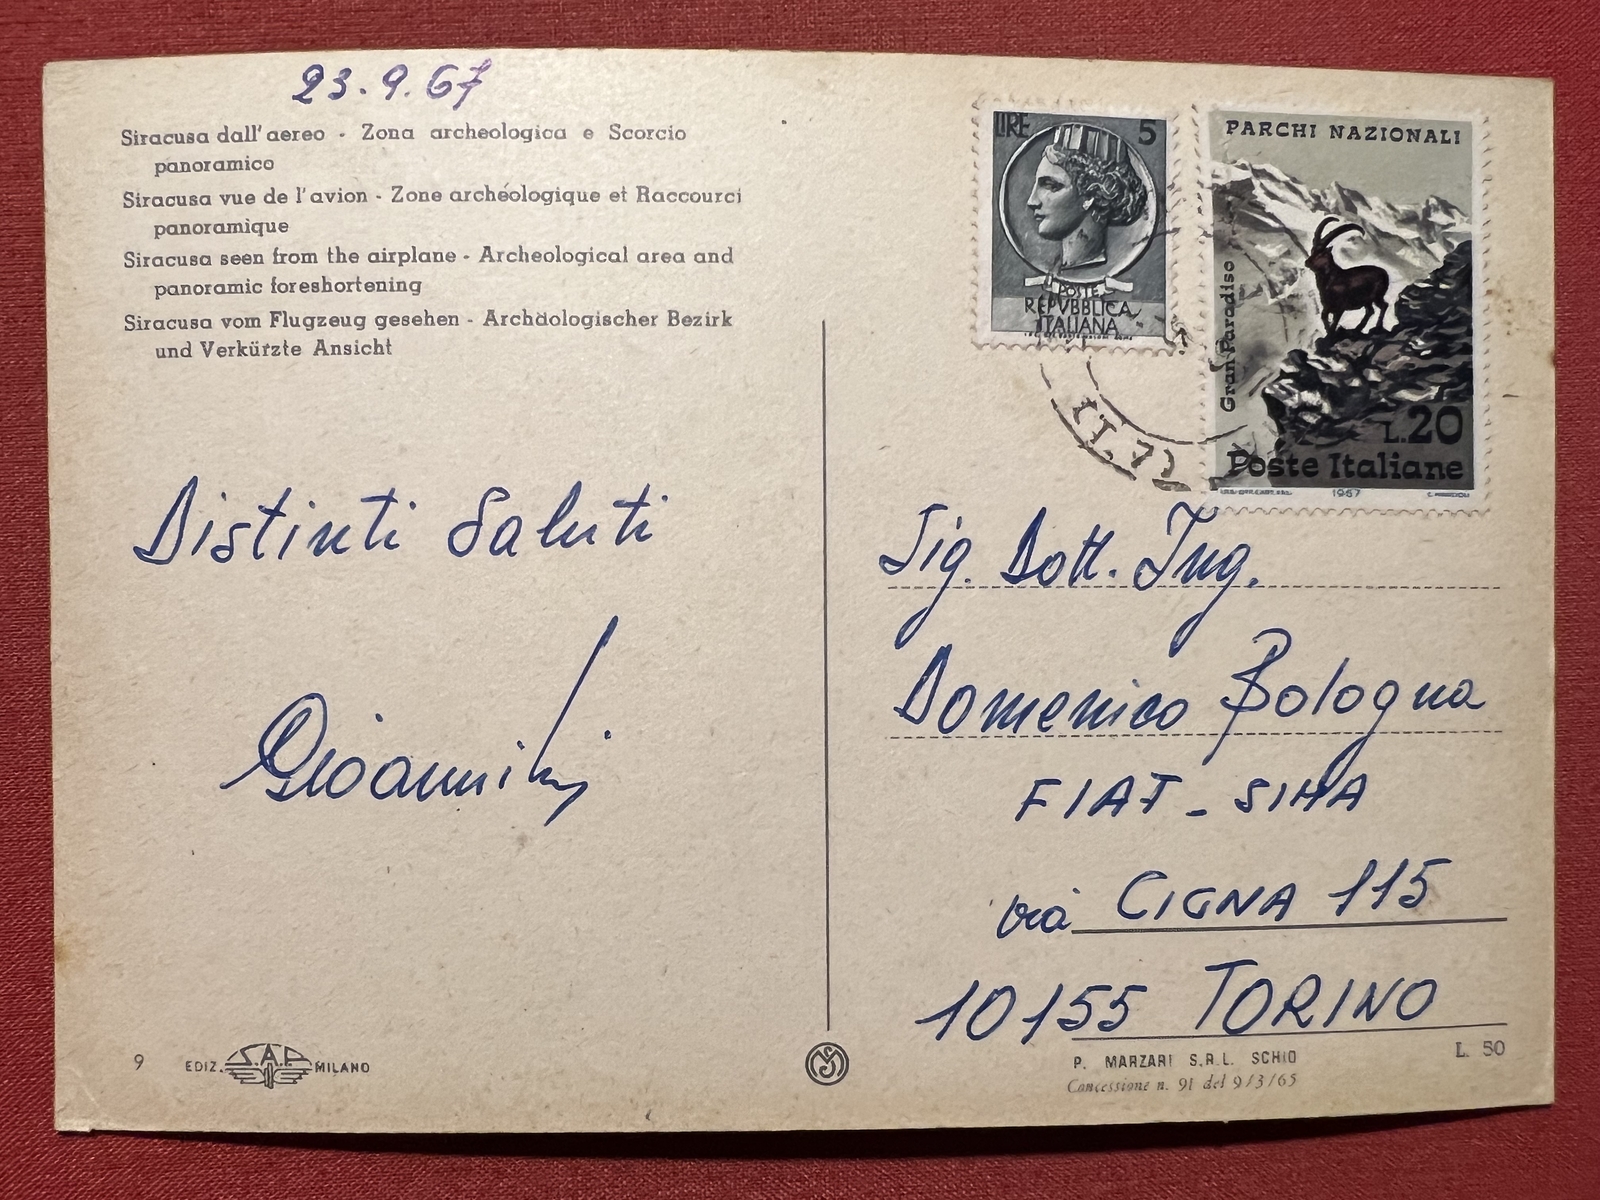 23.9.67
Siracusa dall'aereo - Zona archeologica e Scorcio
panoramico
Siracusa vue de l'avion - Zone archéologique et Raccourci
panoramique
Siracusa seen from the airplane - Archeological area and
panoramic foreshortening
Siracusa vom Flugzeug gesehen - Archäologischer Bezirk
und Verkürzte Ansicht
Distinti Saluti
LIRE 5
POSTE
REPVBBLICA
ITALIANA
PARCHI NAZIONALI
Gran Paradiso
L.20
Poste Italiane
1967
Sig. Dott. Ing.
Domenico Bologna
FIAT - SIMA
via CIGNA 115
10155 TORINO
9 EDIZ. S.A.F. MILANO
P. MARZARI S.R.L. SCHIO
Concessione n. 91 del 9/3/65
L. 50